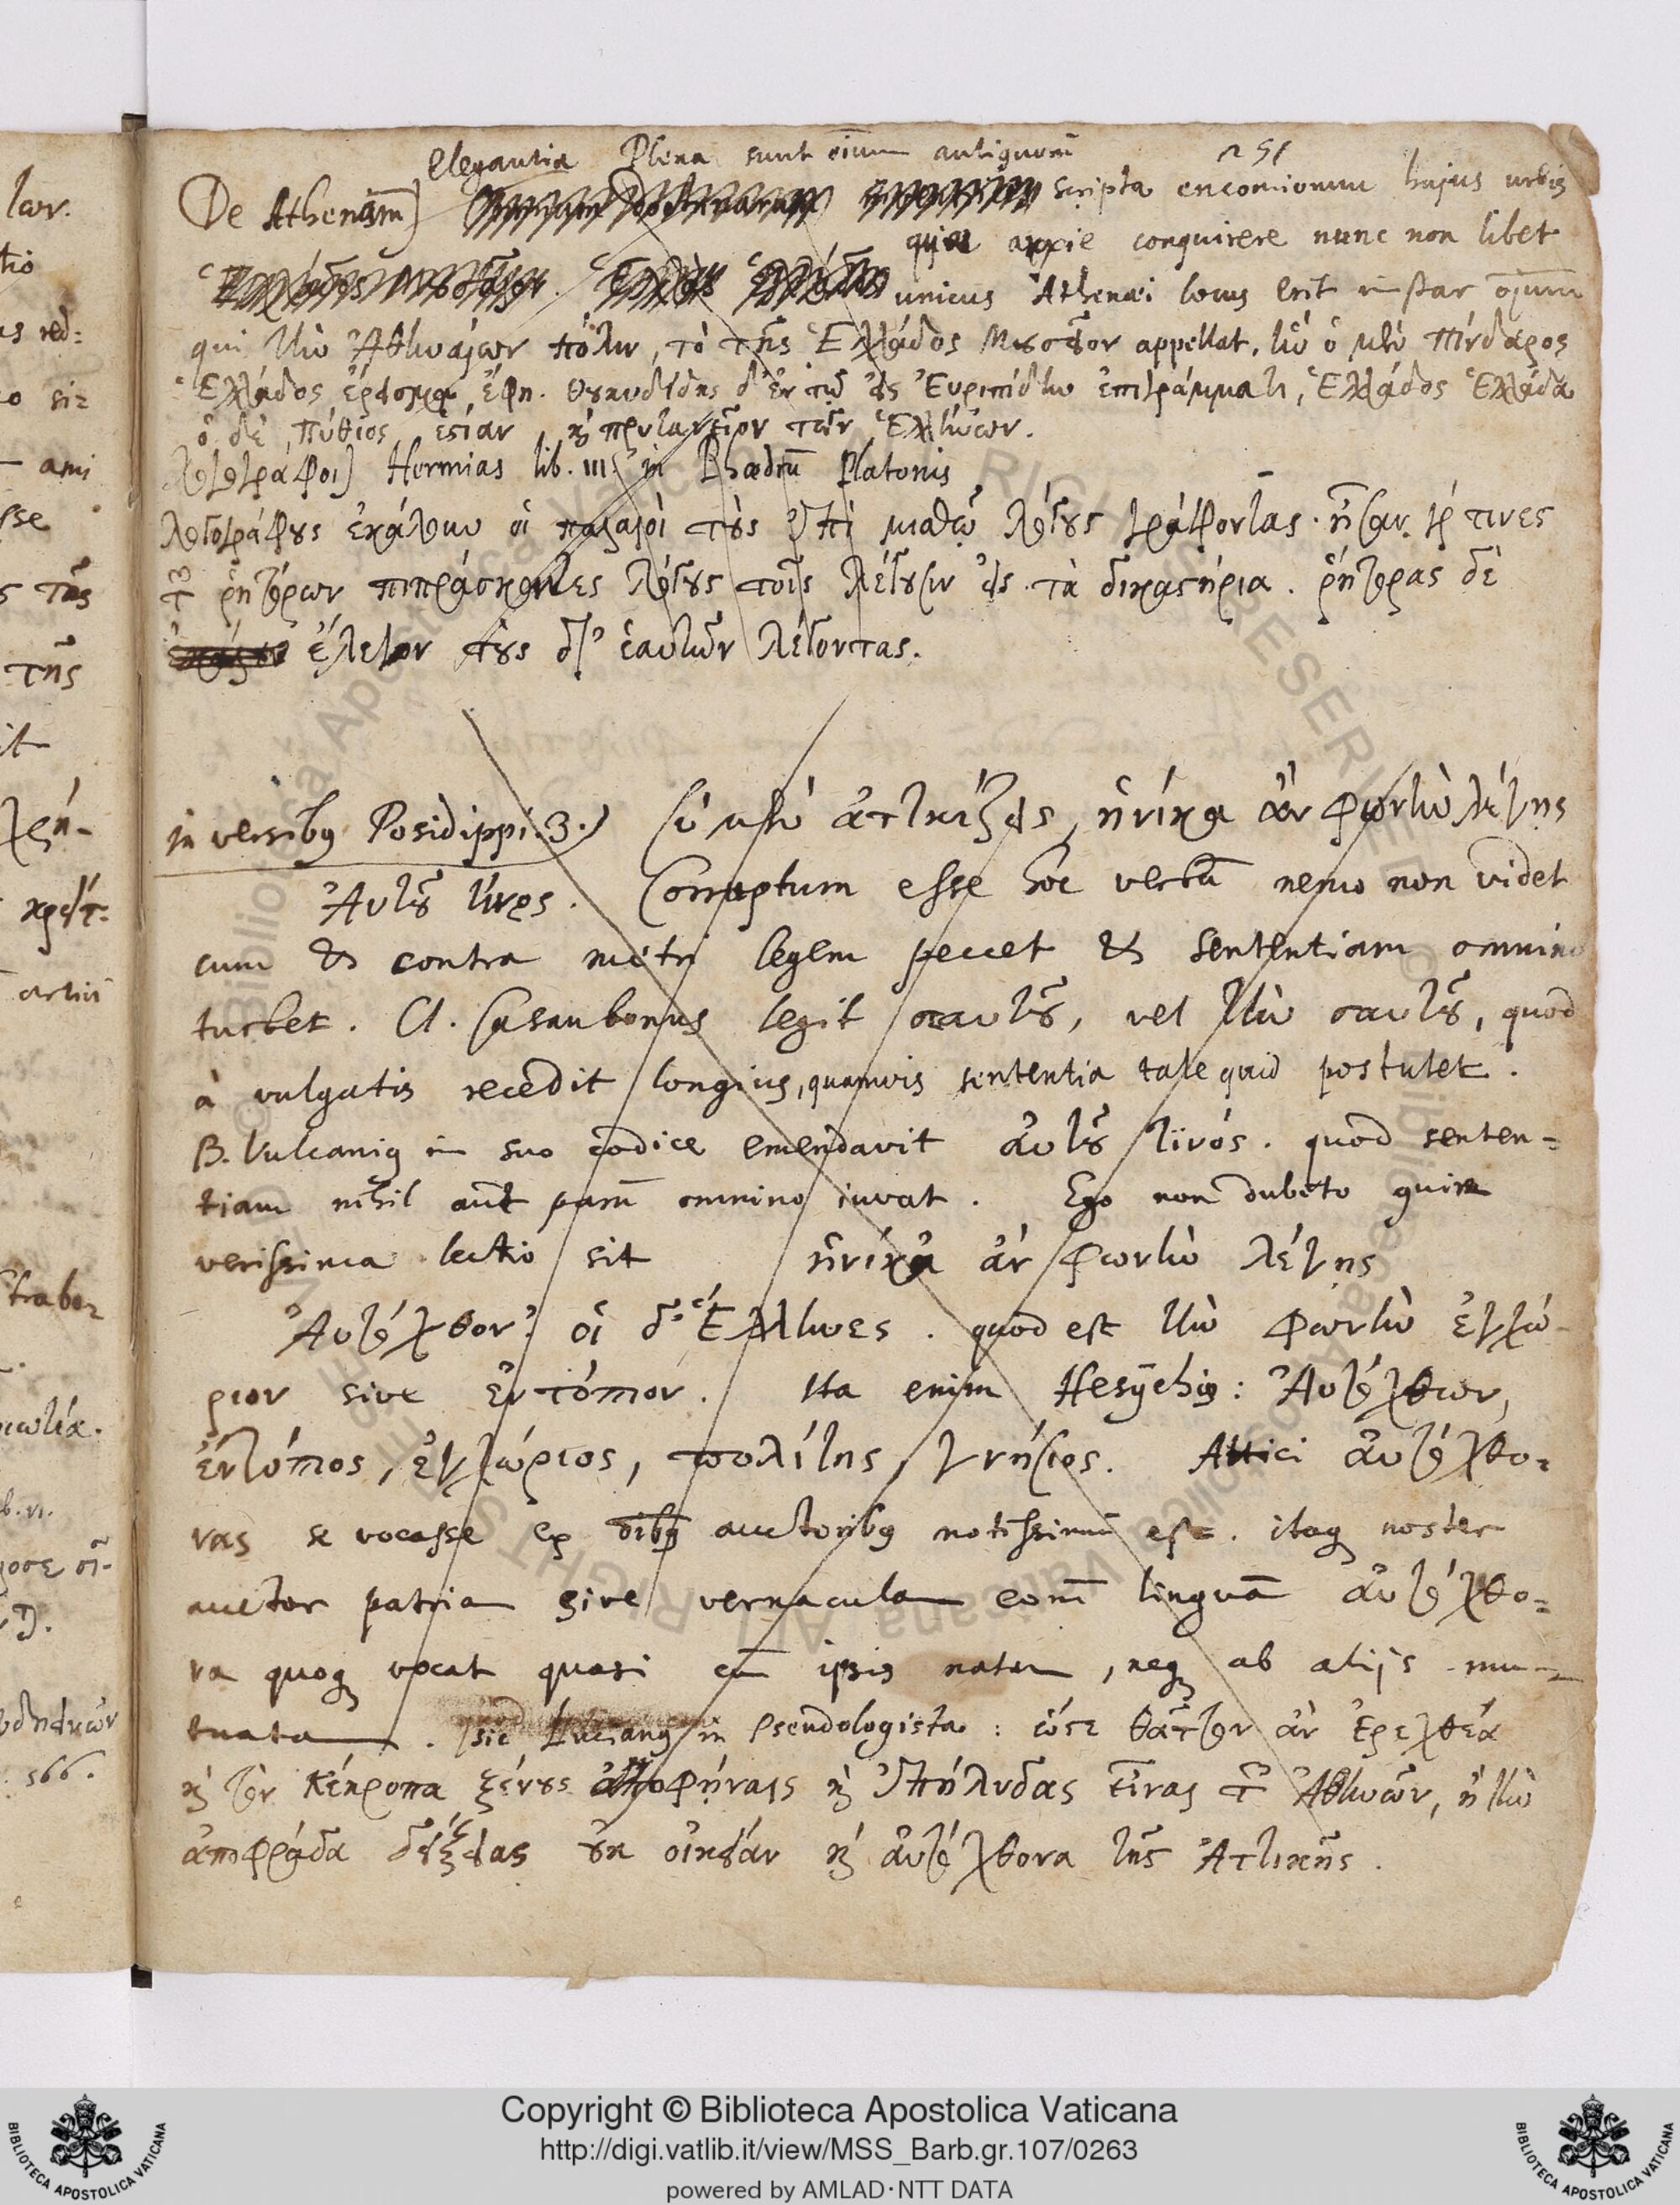 251
Elegantia Plena sunt oium antiquorū
De Athenarum] scripta encomiorum hujus urbis
quae conquirere nunc non libet
unicus Athenæi locus erit instar oium
qui τὴν Ἀθηναίων πόλιν, τὸ τῆς Ἑλλάδος Μουσεῖον appellat, ἣν ὁ μὲν Πίνδαρος
Ἑλλάδος ἔρεισμα, ἔφη. Θουκυδίδης δ' ἐν τῷ εἰς Εὐριπίδην ἐπιγράμματι, Ἑλλάδος Ἑλλάδα
ὁ δὲ Πύθιος ἑστίαν, καὶ πρυτανεῖον τῶν Ἑλλήνων.
λογογράφοι] Hermias lib. III. in Phædrū Platonis
λογογράφους ἐκάλουν οἱ παλαιοὶ τοὺς ἐπὶ μισθῷ λόγους γράφοντας. ἦσαν γάρ τινες
τῶν ῥητόρων πιπράσκοντες λόγους τοῖς λέγουσιν εἰς τὰ δικαστήρια. ῥήτορας δὲ
ἔλεγον τοὺς δι' ἑαυτῶν λέγοντας.
in versibus Posidippi. 3.) σὺ μὲν ἀττικίζεις, ἡνίκα ἂν φωνὴν λέγῃς
Αὐτοῦ τινος. Corruptum esse hoc versū nemo non videt
cum & contra metri legem peccet & sententiam omnino
turbet. Cl. Casaubonus legit σαυτοῦ, vel τὴν σαυτοῦ, quod
à vulgatis recedit longius, quamvis sententia tale quid postulet.
B. Vulcanius in suo codice emendavit αὐτοῦ τινός. quod senten=
tiam nihil aut parū omnino iuvat. Ego non dubito quin
verissima lectio sit ἡνίκα ἂν φωνὴν λέγῃς
Αὐτόχθον'. οἱ δ' Ἕλληνες. quod est τὴν φωνὴν ἐγχώ-
ριον sive ἐντόπιον. Ita enim Hesychius: Αὐτόχθων,
ἐντόπιος, ἐγχώριος, πολίτης, γνήσιος. Attici αὐτόχθο=
νας se vocasse ex oibus auctoribus notissimū est. itaque noster
auctor patriam sive vernaculam eorū linguā αὐτόχθο=
να quoque vocat quasi cū ipsis natam, neque ab alijs mu-
tuatam. sic Lucianus in Pseudologista: ὥστε θᾶττον ἂν Ἐρεχθέα
καὶ τὸν Κέκροπα ξένους ἀποφήναις καὶ ἐπήλυδας εἶναι τῶν Ἀθηνῶν, ἢ τὴν
ἀποφράδα δείξειας οὐκ οἰκείαν καὶ αὐτόχθονα τῆς Ἀττικῆς.
Copyright © Biblioteca Apostolica Vaticana
http://digi.vatlib.it/view/MSS_Barb.gr.107/0263
powered by AMLAD·NTT DATA